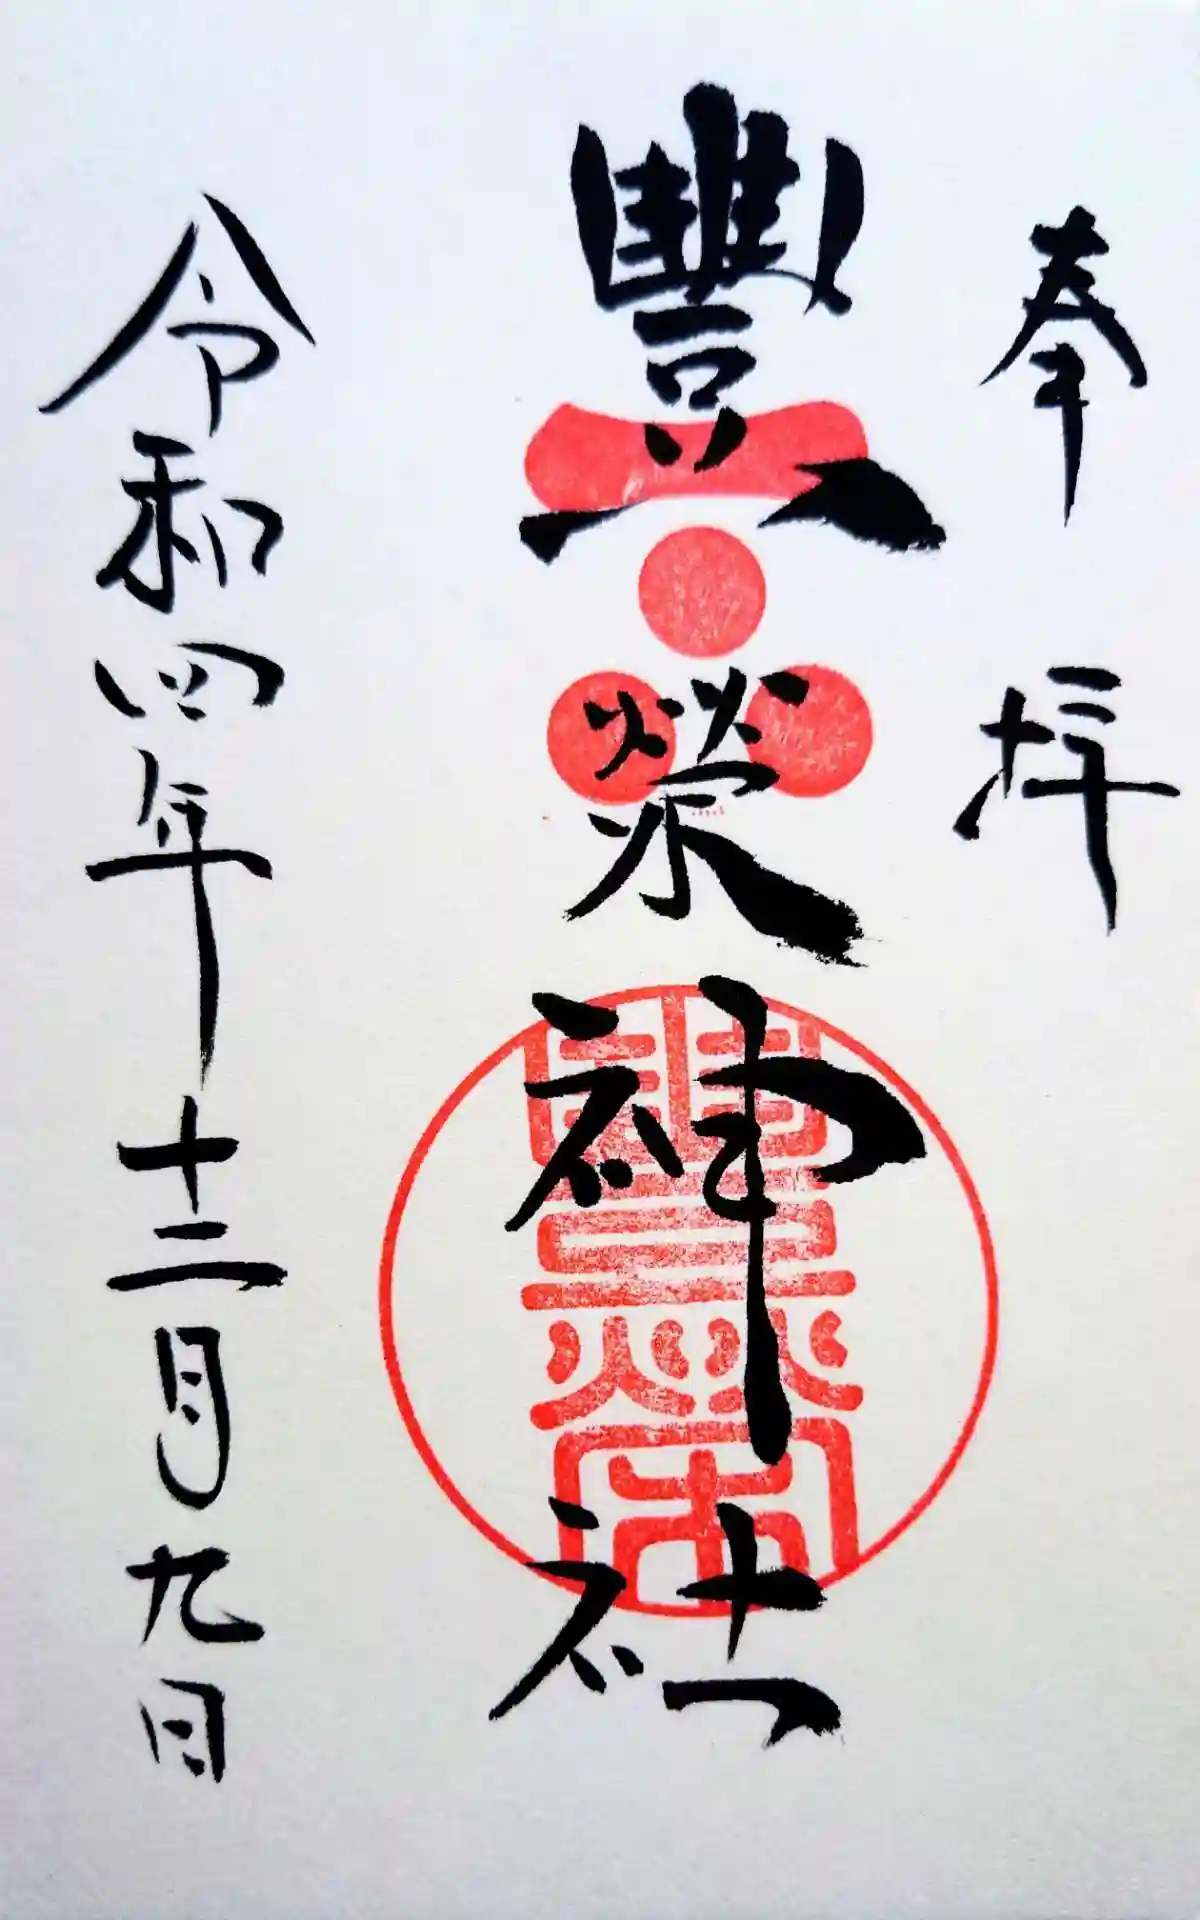 奉拝
豐榮神社
豐榮
令和四年十二月九日